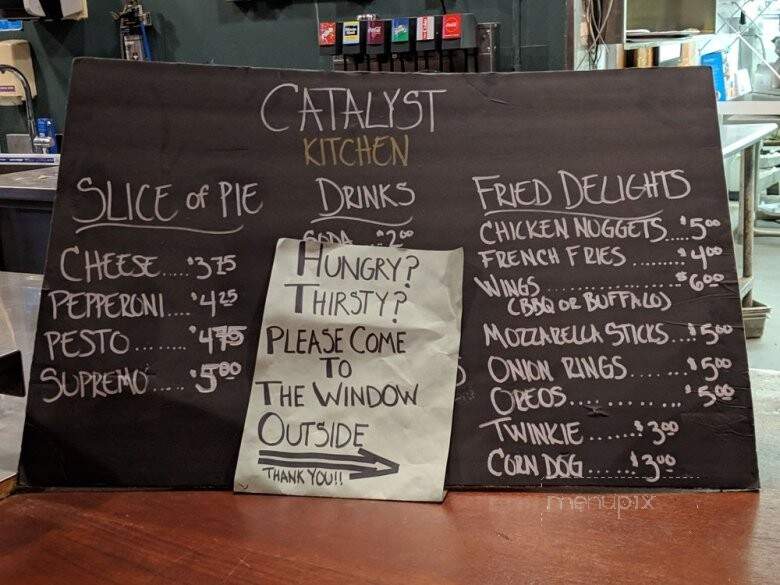 CATALYST
KITCHEN
SLICE of PIE
CHEESE....$3.75
PEPPERONI....$4.25
PESTO........$4.75
SUPREMO.....$5.00
DRINKS
SODA $2.00
HUNGRY?
THIRSTY?
PLEASE COME
TO
THE WINDOW
OUTSIDE
THANK YOU!!
FRIED DELIGHTS
CHICKEN NUGGETS....$5.00
FRENCH FRIES..........$4.00
WINGS...................$6.00
(BBQ OR BUFFALO)
MOZZARELLA STICKS...$5.00
ONION RINGS.......$5.00
OREOS..............$5.00
TWINKIE......$3.00
CORN DOG......$3.00
menupix